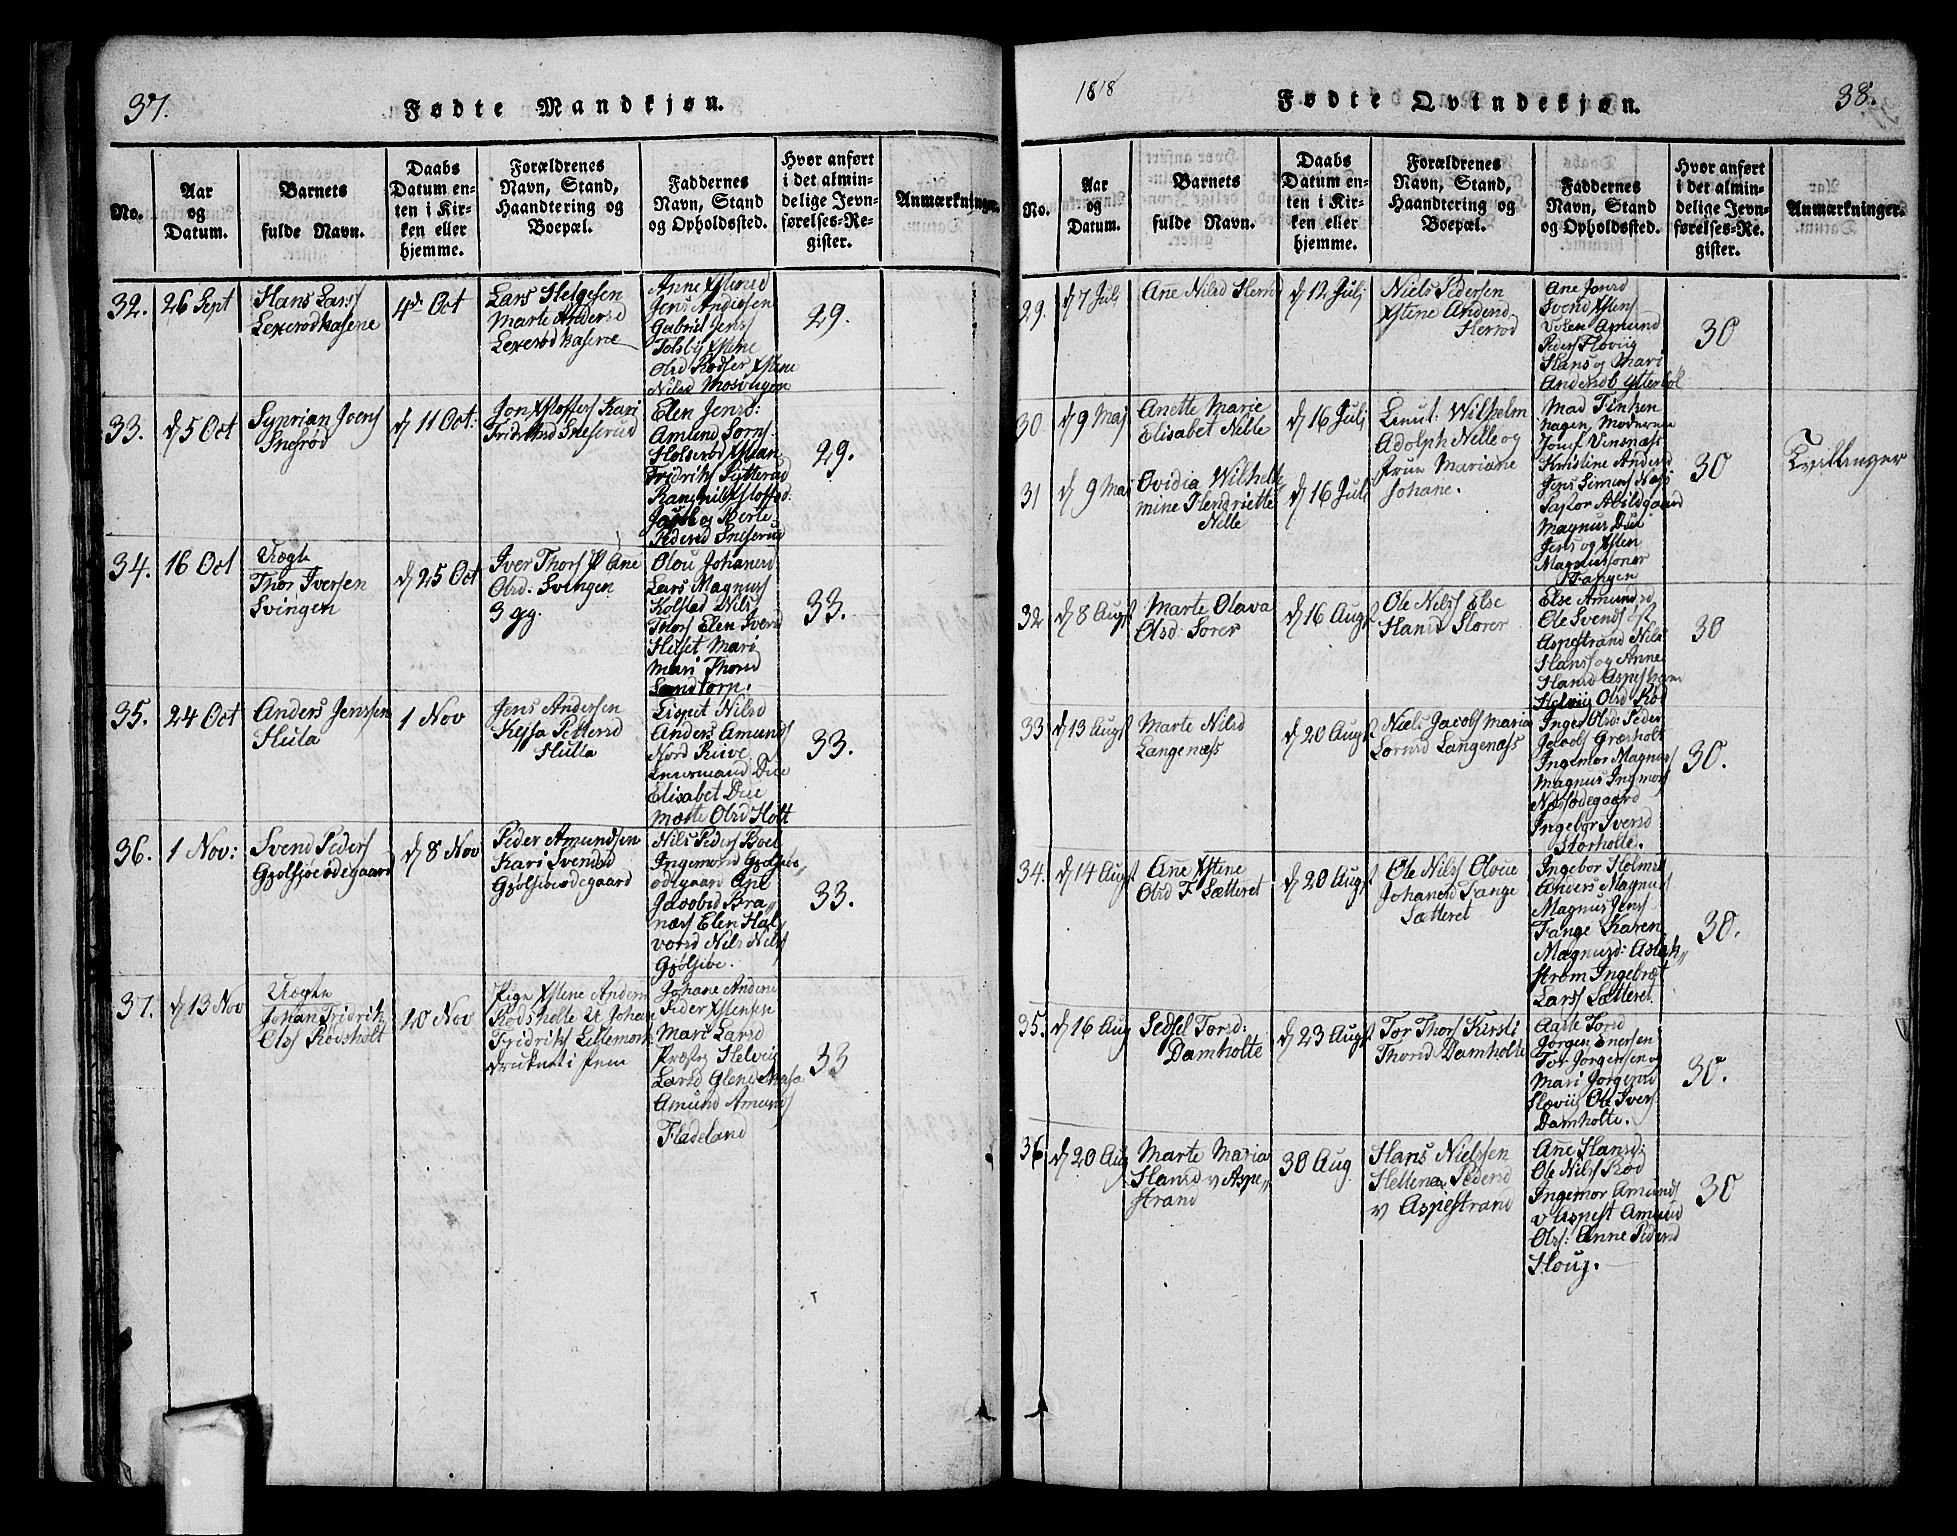 37.
Fødte Mandkjøn.
No.
Aar
og
Datum.
Barnets
fulde Navn.
Daabs
Datum en-
ten i Kir-
ken eller
hjemme.
Forældrenes
Navn, Stand,
Haandtering og
Boepæl.
Faddernes
Navn, Stand
og Opholdssted.
Hvor anført
i det almin-
delige Jevn-
førelses-Re-
gister.
Anmærkninger.
32.
26 Sept
Hans Larss
Lexerødkasene
4de Oct
Lars Helgesen
Marte Andersd
Lexerødkasene
Anne
Jens Andersen
Gabriel Jenss
Tolsby
Olsd Rødser
Nilsd Mosvigen
29.
33.
d 5 Oct
Syprian Joens
Snesrød
d 11 Oct:
Kari
Fridrichsd Sneserud
Elen Jensd:
Amund Sørns:
Holserød
Fridriks Sytterud
Berte
Pedersd Sneserud
29.
34.
16 Oct
Uægte
Thor Iversen
Svingen
d 25 Oct
Iver Thors P Ane
Olsd: Svingen
3 gg.
Olou Johanesd
Lars Magnuss
Kolstad Nils
Thors Elen Iversd
Huset Mari
Mari Thorsd
Sandtorp.
33.
35.
24 Oct
Anders Jenssen
Hula
1 Nov
Jens Andersen
Kejsa Pettersd
Hulla
Lispet Nilsd
Anders Amunds
Nord Rive
Due
Elisabet Due
Mette Olsd Holt
33.
36.
1 Nov:
Svend Peders
Gjølsjøeødegaard
d 8 Nov
Peder Amundsen
Kari Svendsd
Gjølsiøeødegaard
Nils Peders Boe
Ingemond Gjølsiøe,,
ødegaard Ane
Jacobsd Bra,,
næs Elen Hal,,
vorsd Nils Nilss
Gjølsiøe.
33.
37.
d 13 Nov
Uægte
Johan Fridrik
Olss Rødsholt
20 Nov
Pige Xstene Anders
Rødsholte U Johan
Fridriks Lillemork
druknet i
Johane Anders
Peder Xstensen
Mari Larsd
Helvig
Larsd Glende
Amund Amunds
Fladeland
33
1818
Fødte Qvindekjøn.
38.
No.
Aar
og
Datum.
Barnets
fulde Navn.
Daabs
Datum en-
ten i Kir-
ken eller
hjemme.
Forældrenes
Navn, Stand,
Haandtering og
Boepæl.
Faddernes
Navn, Stand
og Opholdssted.
Hvor anført
i det almin-
delige Jevn-
førelses-Re-
gister.
Anmærkninger.
29.
d 7 Julj
Ane Nilsd Herrød
d 12 Julj
Niels Pedersen
Xstine Andersd
Herrød
Ane Jonsd
Svend Xstens
Amund
Peders
Hans og Mari
Andersd Ytterbøl
30
30
d 9 Maj
Anette Marie
Elisabet Nelle
d 16 Julj
Leeut: Wilhelm
Adolph Nelle og
frue Mariane
Johane.
Mad Tinken
hagen, Moderen
Josef Vensnæss
Kristine Andersd
Jens Simens Næss
Pastor Abildgaard
Magnus Due
Jens og Xsten
Magnussønner
Tangen
30
Tvillinger
31
d 9 Maj
Ovidia Wilhel,,
mine Hendriette
Nelle
d 16 Julj
32
d 8 Augst
Marte Olava
Olsd: Sorer
d 16 Augst
Ole Nilss Else
Hansd Sorer
Else Amundsd
Ole Svends øst
Aspestrand Nils
Hanss og Anne
Hansd Aspestrand
Helvig Olsd Rød
30
33
d 13 Augst
Marte Nilsd
Langenæss
d 20 Augst
Niels Jacobs Maria
Sørnsd Langenæss
Inger Olsd: Peder
Jacobs Græsholt
Ingemor Magnus
Magnus Ingmors
Næsødegaard
Ingebor Iversd
Storholte.
30.
34.
d 14 Augst
Ane Xstine
Olsd F Sætteret
d 20 Augst
Ole Nilss Oloue
Johanesd Tange
Sætteret
Ingebor Holmsd
Anders Magnuss
Magnus Jenss
Tange Karen
Magnusd: Aslak,,
strøm Ingebræt
Larss Sætteret
30.
35.
d 16 Aug
Sedsel Torsd:
Damholte
d 23 Augst
Tor Thorss Kirsti
Thorsd Damholte
Aaste Torsd
Jørgen Enersen
Tor Jørgensen og
Mari Jørgensd
Slævig Ole Ivers
Damholte.
30.
36
d 20 Aug
Marte Maria
Hansd v Aspe,,
strand
30 Aug
Hans Nielssen
Hellena Pedersd
v Aspestrand
Ane Hansd:
Ole Nilss Rød
Ingemor Amunds
v Aspest Amund
Olss: Anne Pedersd
Houg.
30